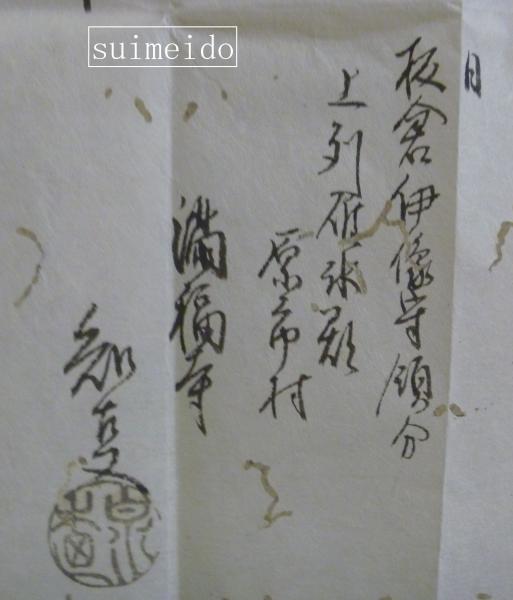 suimeido
日
板倉伊豫守領分
上列碓氷郡
原市村
満福寺